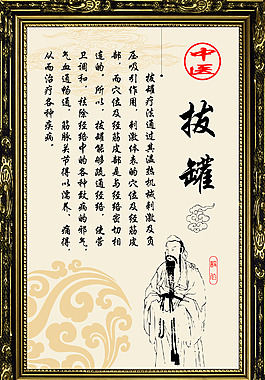 中医
拔罐
拔罐疗法通过其温热机械刺激及负
压吸引作用，刺激体表的穴位及经筋皮
部，而穴位及经筋皮部是与经络密切相
连的，所以，拔罐能够疏通经络，使营
卫调和，祛除经络中的各种致病的邪气，
气血通畅通，筋脉关节得以濡养、痛得，
从而治疗各种疾病。